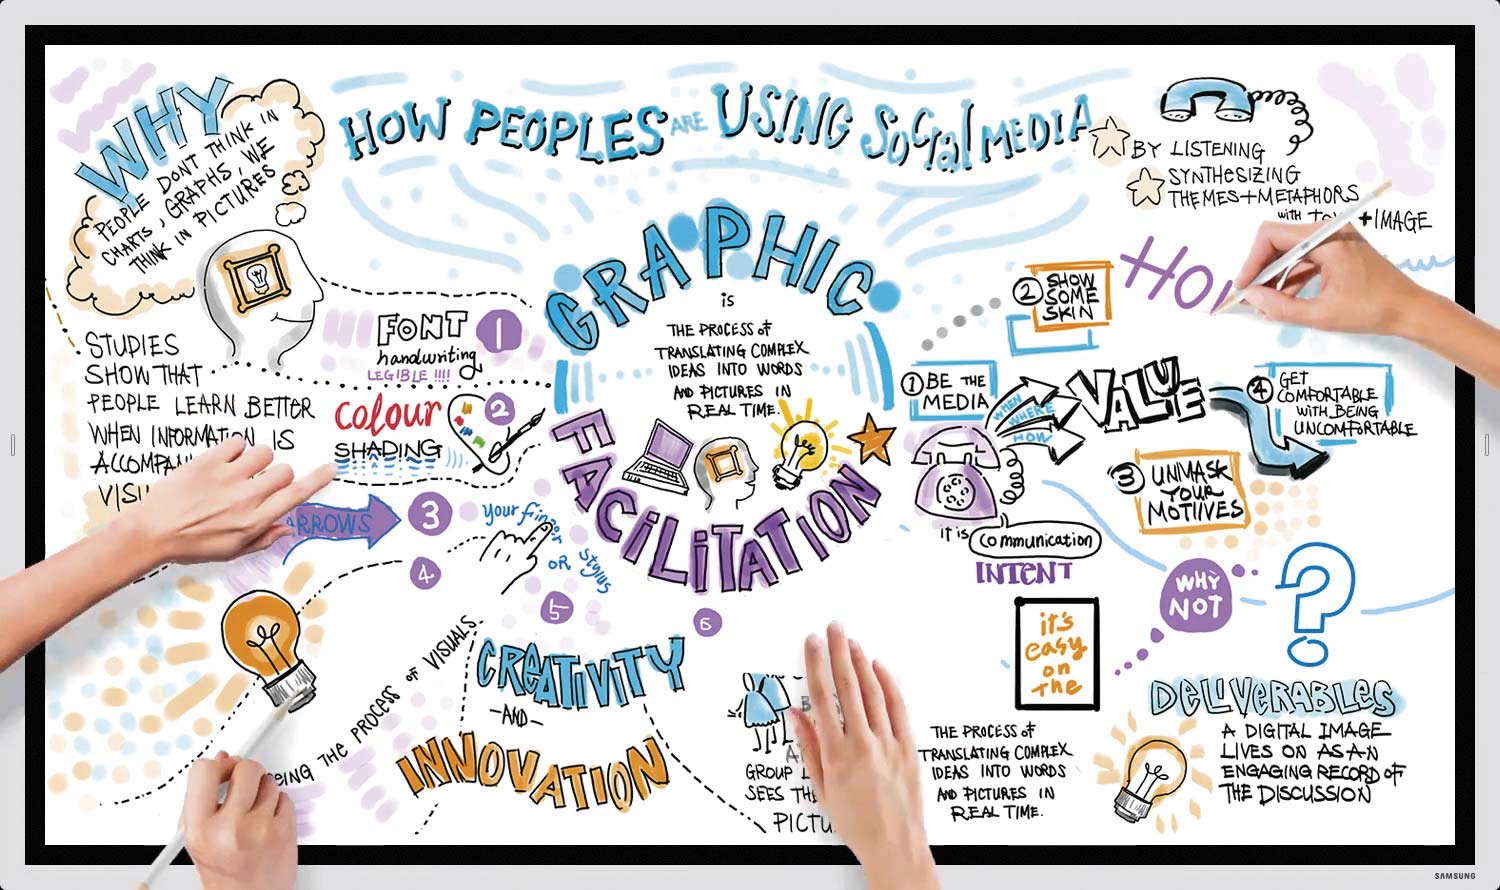 WHY
PEOPLE DON'T THINK IN
CHARTS, GRAPHS, WE
THINK IN PICTURES
HOW PEOPLES ARE USING SOCIAL MEDIA
BY LISTENING
SYNTHESIZING
THEMES+METAPHORS
WITH +IMAGE
STUDIES
SHOW THAT
PEOPLE LEARN BETTER
WHEN INFORMATION IS
1
FONT
handwriting
LEGIBLE !!!!
2
colour
SHADING
ARROWS
3
4
your finger
OR STYLUS
5
6
GRAPHIC
is
THE PROCESS of
TRANSLATING COMPLEX
IDEAS INTO WORDS
AND PICTURES IN
REAL TIME.
FACILITATION
1 BE THE
MEDIA
2 SHOW
SOME
SKIN
WHEN
WHERE
HOW
VALUE
3 UNMASK
YOUR
MOTIIVES
4 GET
COMFORTABLE
WITH BEING
UNCOMFORTABLE
it is communication
INTENT
WHY
NOT
?
it's
easy
on
the
THE PROCESS OF VISUALS
CREATIVITY
-AND-
INNOVATION
GROUP
SEES
THE PROCESS of
TRANSLATING COMPLEX
IDEAS INTO WORDS
AND PICTURES IN
REAL TIME.
DELIVERABLES
A DIGITAL IMAGE
LIVES ON AS AN
ENGAGING RECORD OF
THE DISCUSSION
SAMSUNG